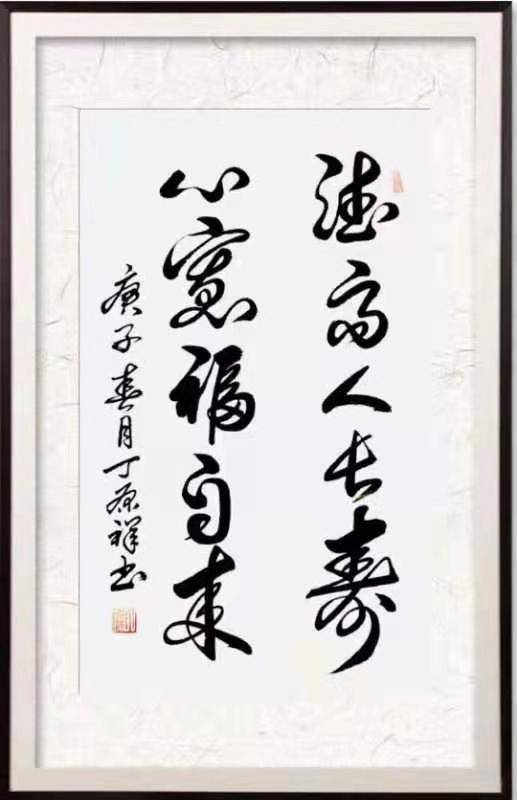 德高人长寿
心寬福自来
庚子春月丁原祥书